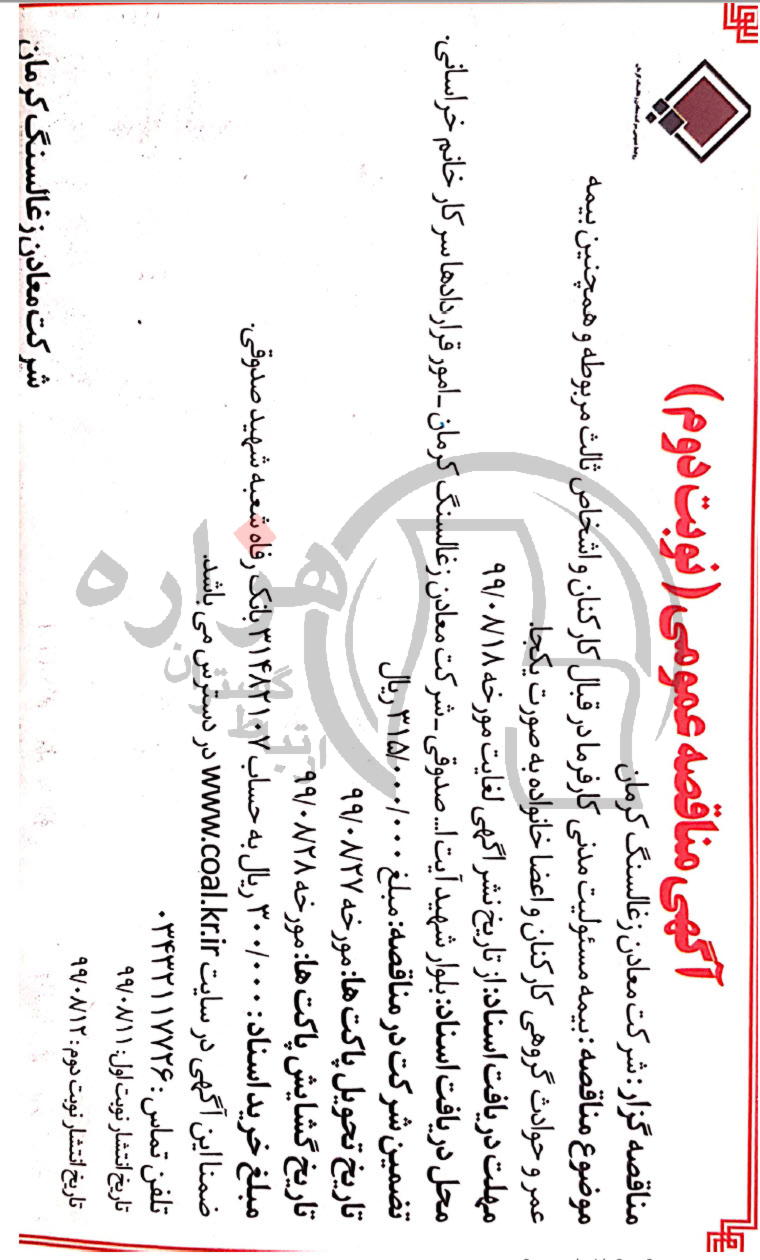 آگهی مناقصه عمومی (نوبت دوم)
روابط عمومی شرکت معادن زغالسنگ کرمان
مناقصه گزار: شرکت معادن زغالسنگ کرمان
موضوع مناقصه: بیمه مسئولیت مدنی کارفرما در قبال کارکنان و اشخاص ثالث مربوطه و همچنین بیمه
عمر و حوادث گروهی کارکنان و اعضا خانواده به صورت یکجا.
مهلت دریافت اسناد: از تاریخ نشر اگهی لغایت مورخه ۹۹/۰۸/۱۸
محل دریافت اسناد: بلوار شهید آیت ا... صدوقی ـ شرکت معادن زغالسنگ کرمان ـ امور قراردادها سرکار خانم خراسانی.
تضمین شرکت در مناقصه: مبلغ ۳۱۵/۰۰۰/۰۰۰ ریال
تاریخ تحویل پاکت ها: مورخه ۹۹/۰۸/۲۷
تاریخ گشایش پاکت ها: مورخه ۹۹/۰۸/۲۸
مبلغ خرید اسناد: ۳۰۰/۰۰۰ ریال به حساب ۳۱۴۸۲۱۰۷ بانک رفاه شعبه شهید صدوقی.
ضمنا این آگهی در سایت www.coal.kr.ir در دسترس می باشد.
تلفن تماس: ۰۳۴۳۲۱۱۷۷۲۶
تاریخ انتشار نوبت اول: ۹۹/۰۸/۱۱
تاریخ انتشار نوبت دوم: ۹۹/۰۸/۱۲
شرکت معادن زغالسنگ کرمان
هزاره
ارتباط
گستران